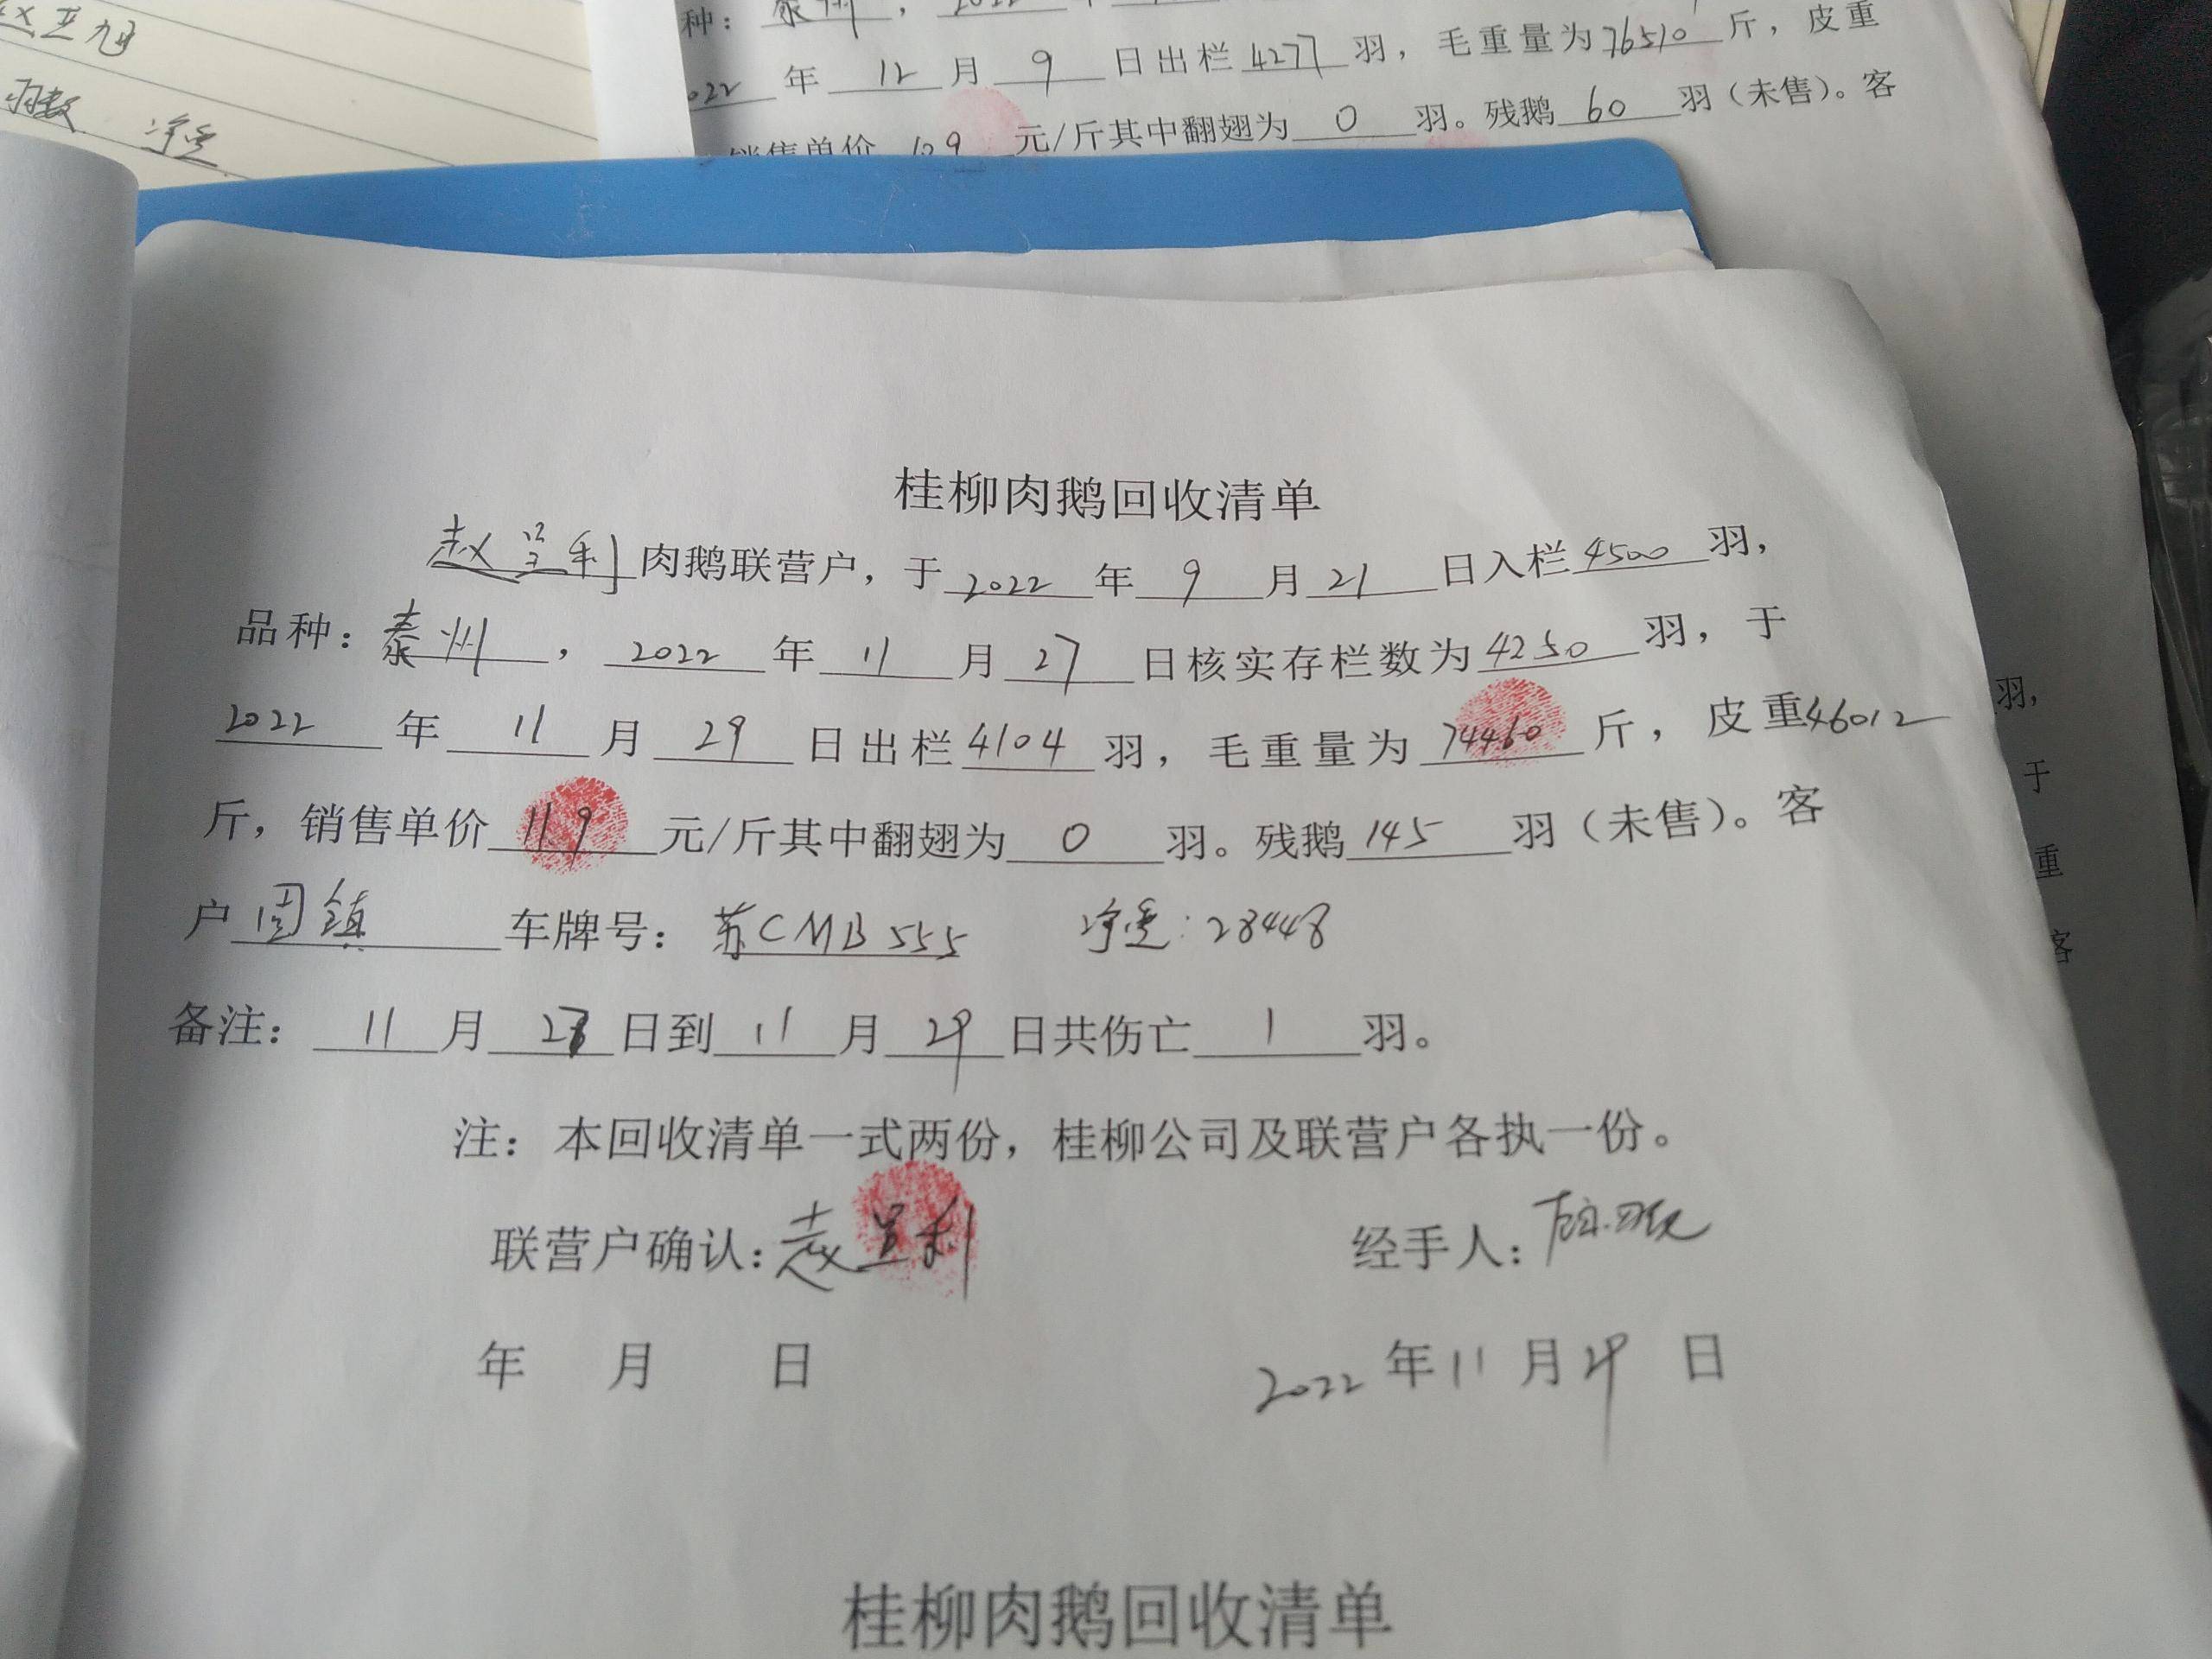 赵亚旭
羽数 净重
种：泰州，2022
022年12月9日出栏4277羽，毛重量为76510斤，皮重
销售单价10.9元/斤其中翻翅为0羽。残鹅60羽（未售）。客
桂柳肉鹅回收清单
赵呈利肉鹅联营户，于2022年9月21日入栏4500羽，
品种：泰州，2022年11月27日核实存栏数为4250羽，于
2022年11月29日出栏4104羽，毛重量为74460斤，皮重46012
斤，销售单价11.9元/斤其中翻翅为0羽。残鹅145羽（未售）。客
户周镇 车牌号：苏CMB555 净重：28448
备注：11月28日到11月29日共伤亡1羽。
注：本回收清单一式两份，桂柳公司及联营户各执一份。
联营户确认：赵呈利 经手人：
年 月 日 2022年11月29日
桂柳肉鹅回收清单
羽，
于
重
客